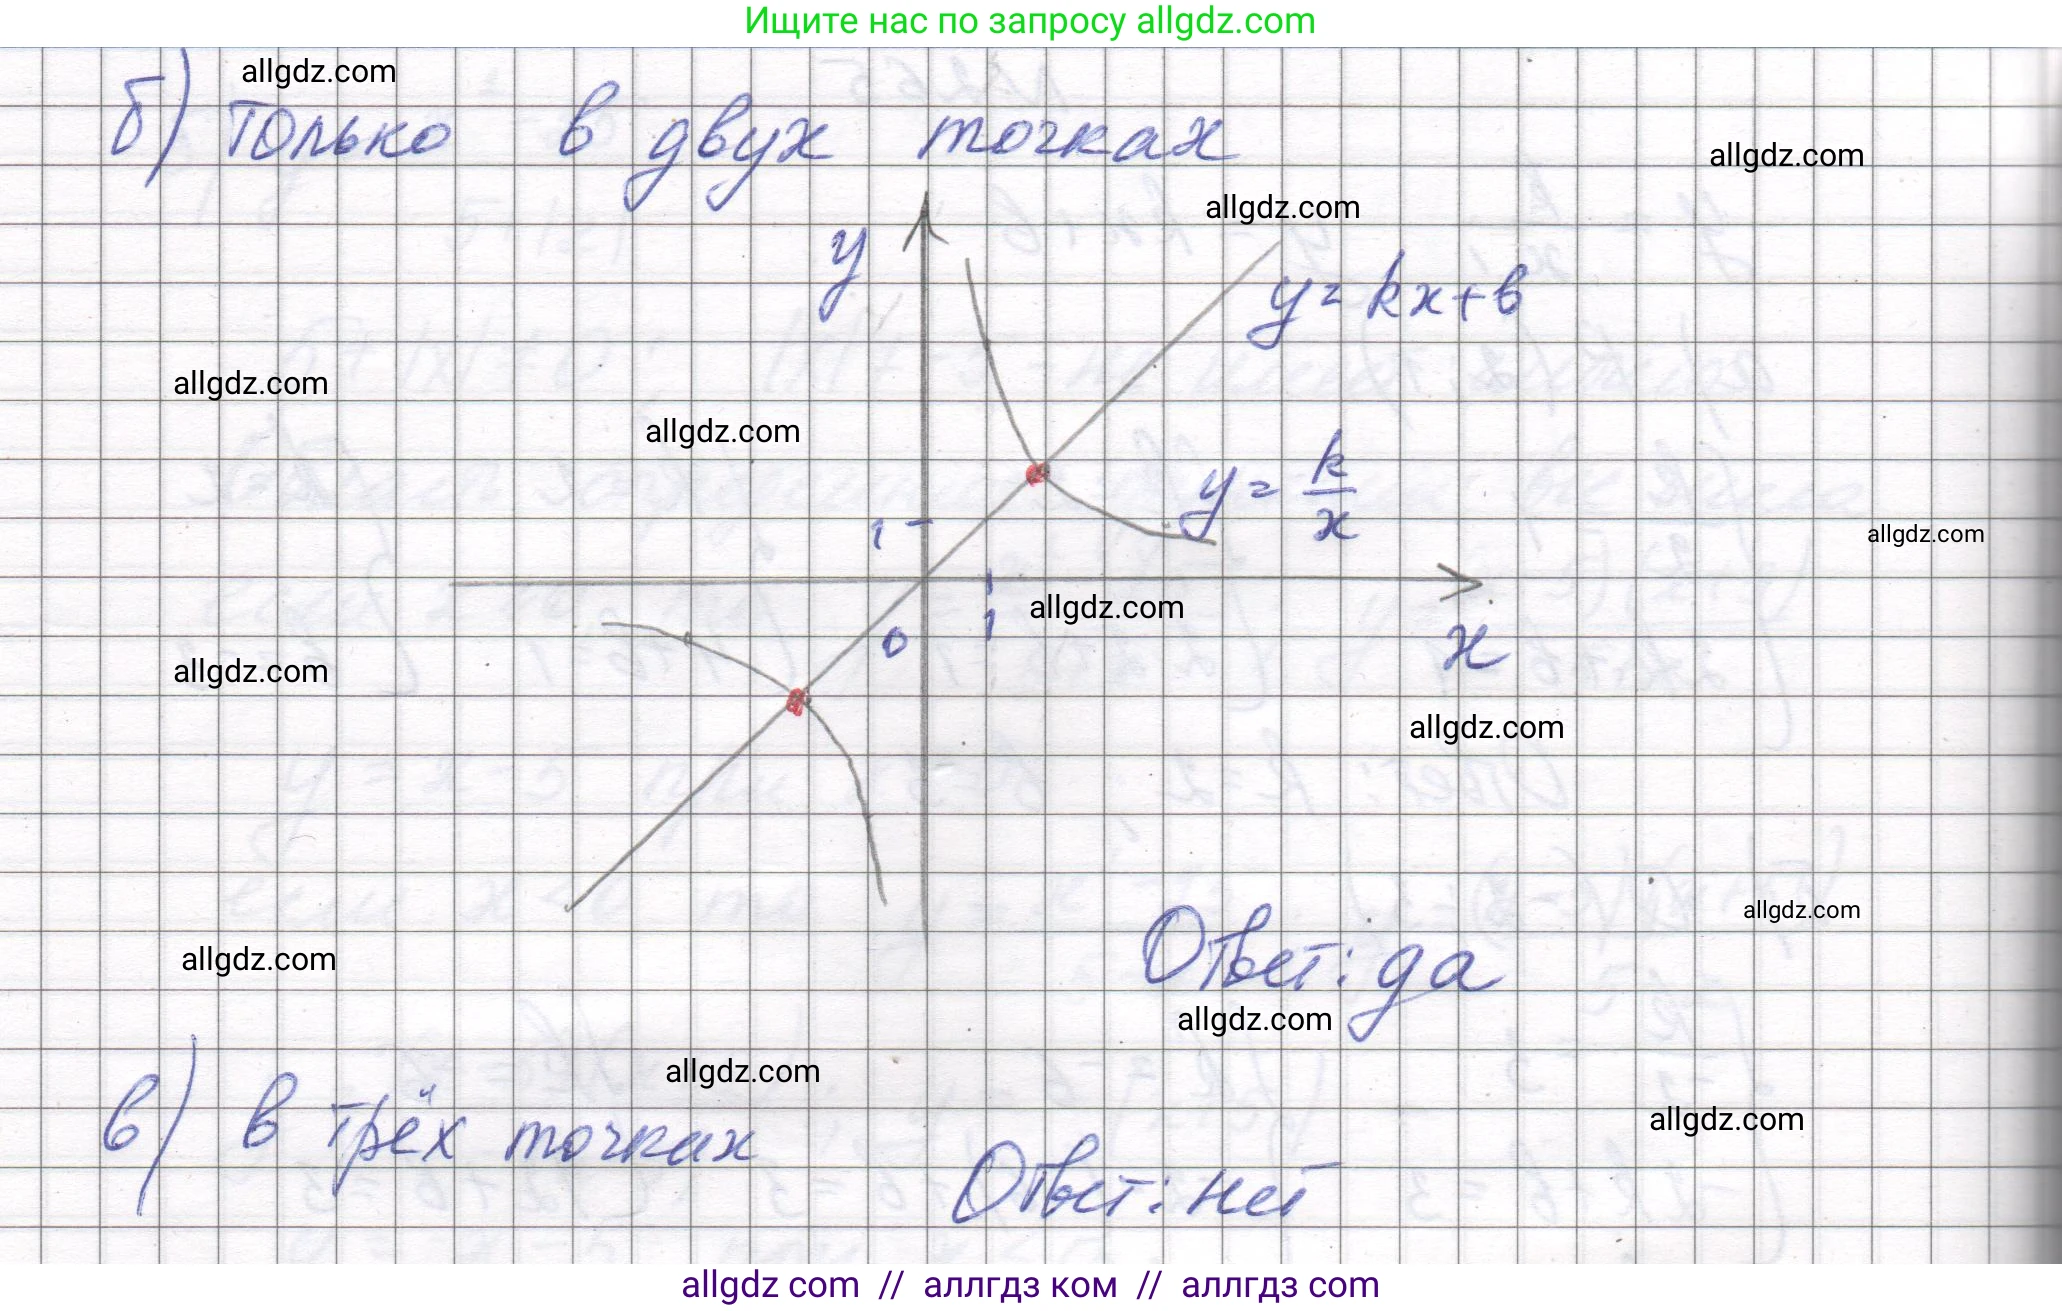 Ищите нас по запросу allgdz.com
allgdz.com
б) только в двух точках
allgdz.com
allgdz.com
y
y = kx + в
allgdz.com
allgdz.com
y = k/x
1
allgdz.com
1
allgdz.com
0
x
allgdz.com
allgdz.com
allgdz.com
Ответ: да
allgdz.com
allgdz.com
allgdz.com
в) в трёх точках
allgdz.com
Ответ: нет
allgdz com // аллгдз ком // аллгдз com